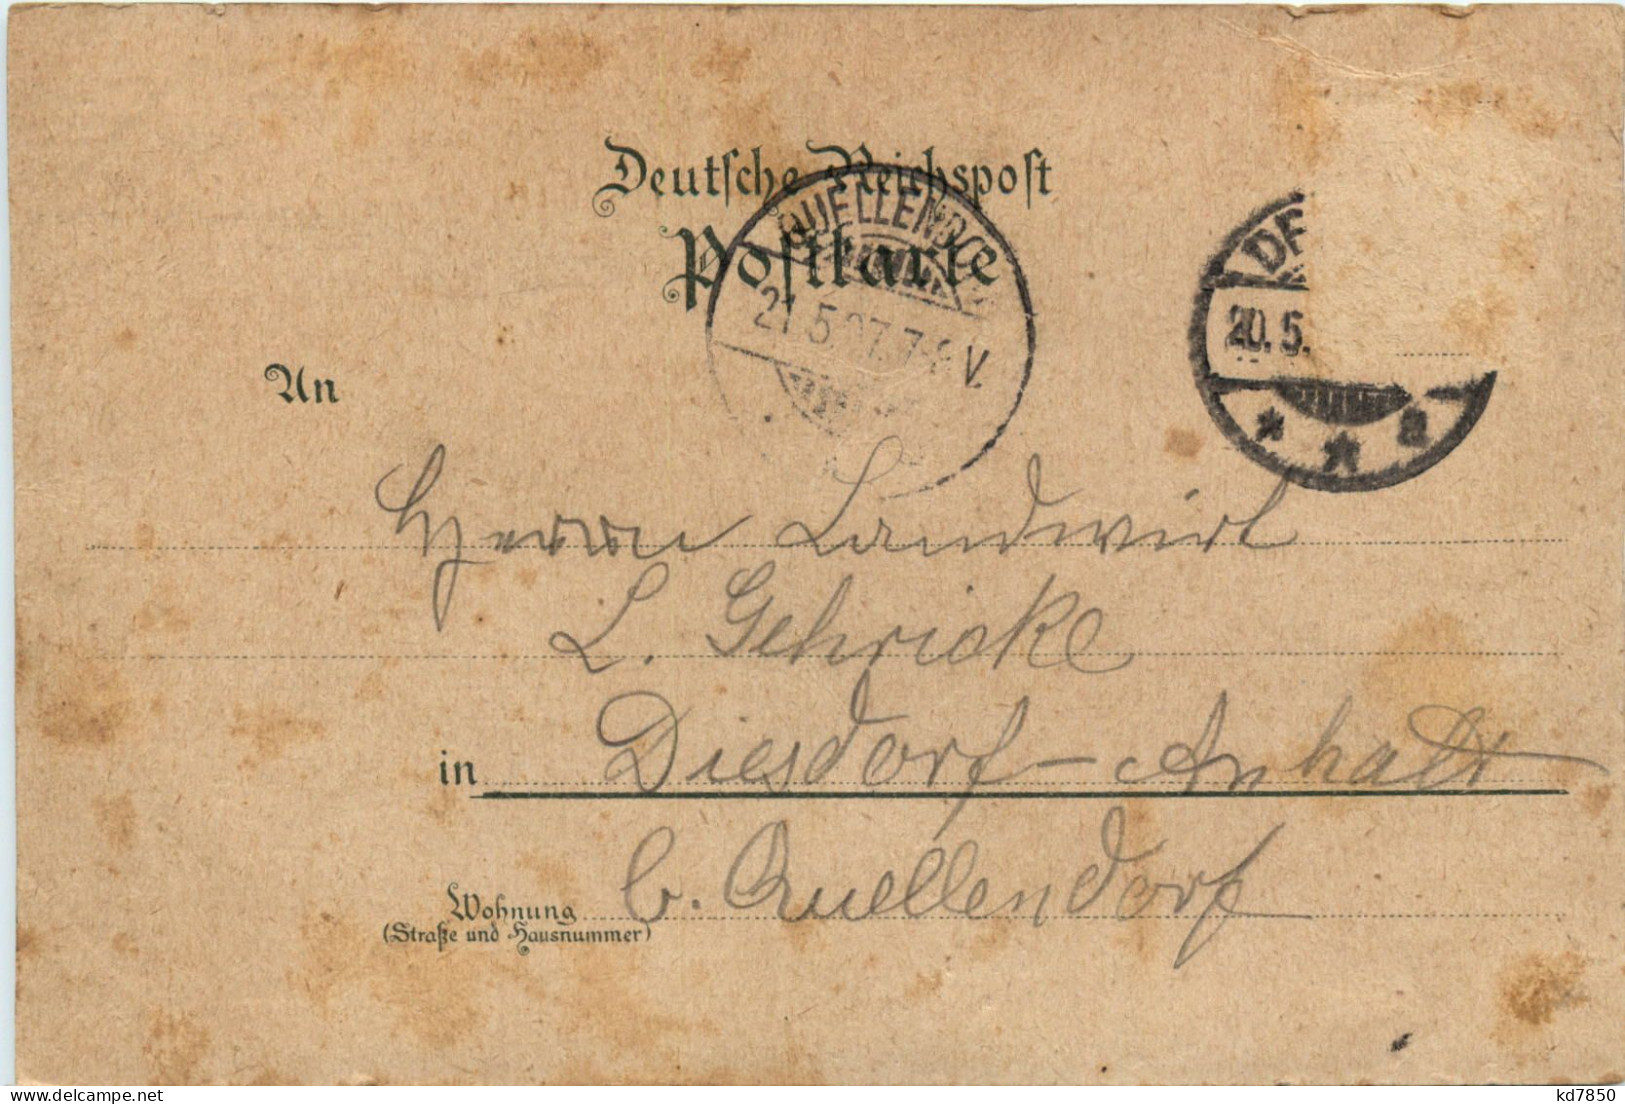 Deutsche Reichspost
Postkarte
QUELLENDO
21.5.97.7-8V.
20.5.
An
Herrn Landwirt
L. Gehricke
in Diesdorf-Anhalt
Wohnung b. Quellendorf
(Straße und Hausnummer)
delcampe.net
kd7850